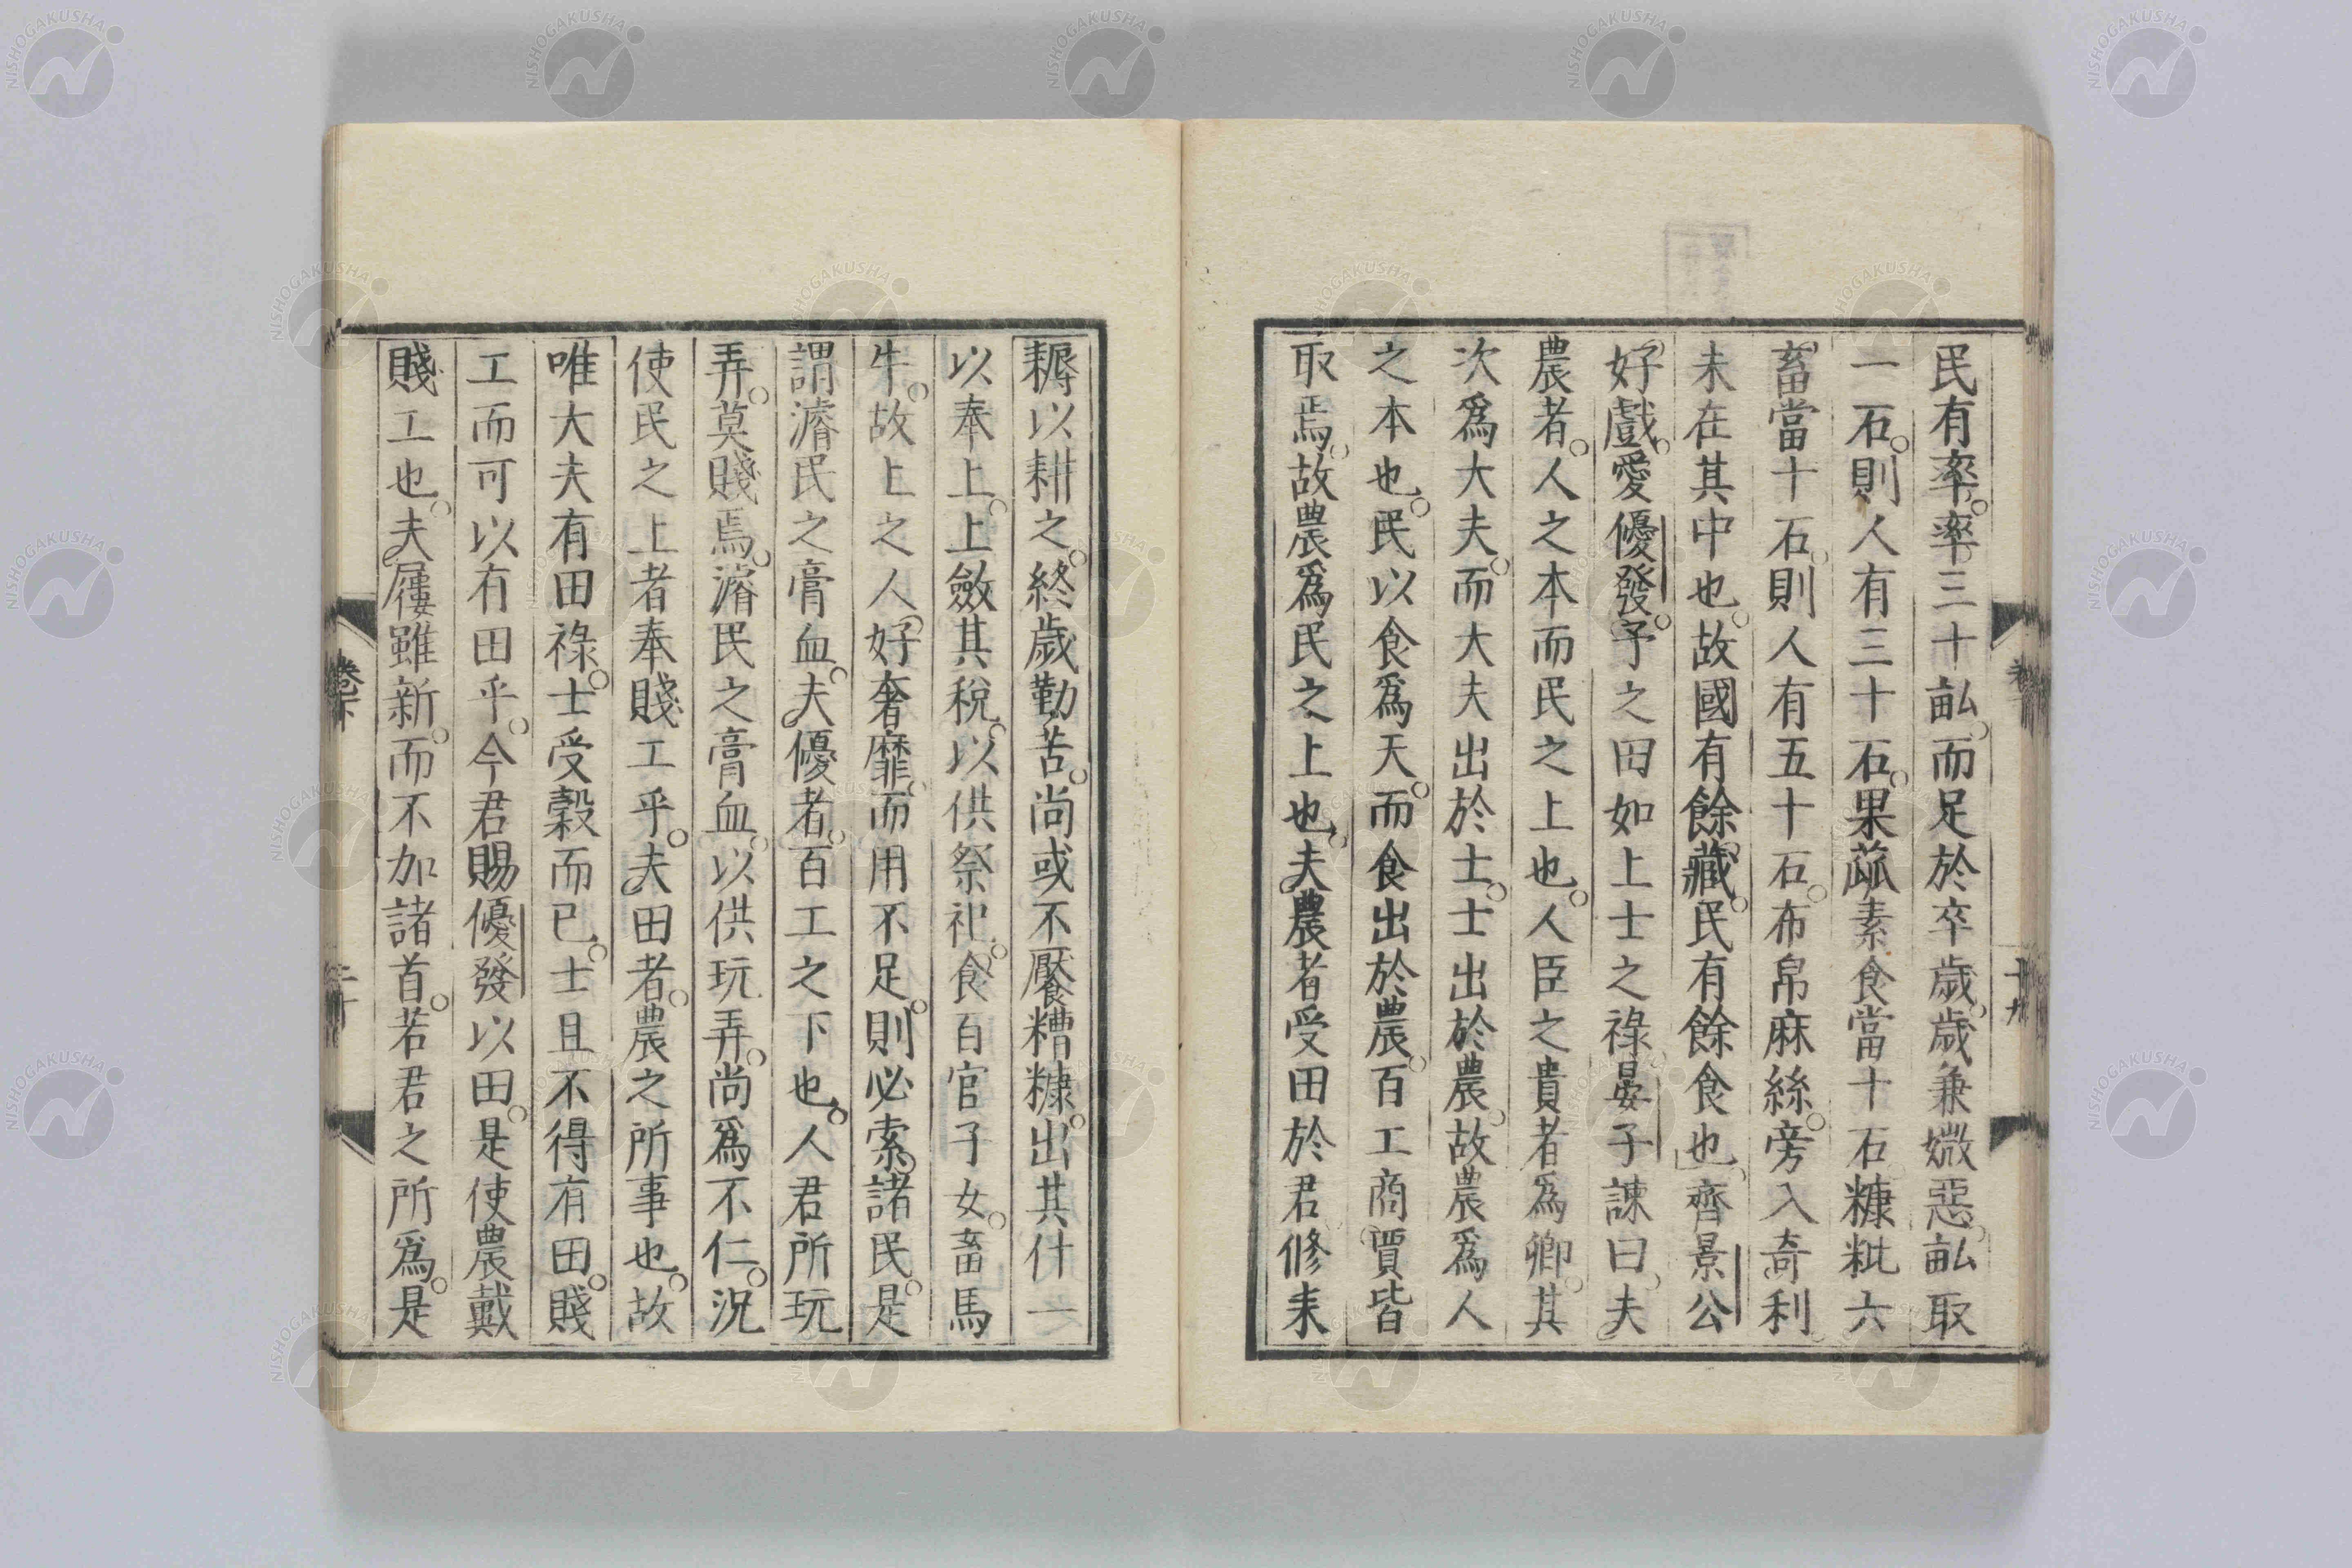 民有率。率三十畝。而足於卒歲。歲兼媺惡。畝取
一石。則人有三十石。果蓏素食當十石。糠粃六
畜當十石。則人有五十石。布帛麻絲。旁入奇利
未在其中也。故國有餘藏。民有餘食也」齊景公
好戲。愛優發。予之田如上士之祿。晏子諫曰。夫
農者。人之本而民之上也。人臣之貴者爲卿。其
次爲大夫。而大夫出於士。士出於農。故農爲人
之本也。民以食爲天。而食出於農。百工商賈皆
取焉。故農爲民之上也。夫農者受田於君。修耒
耨以耕之。終歲勤苦。尚或不饜糟糠。出其什一
以奉上。上斂其稅。以供祭祀。食百官子女。畜馬
牛。故上之人。好奢靡。而用不足。則必索諸民。是
謂濬民之膏血。夫優者。百工之下也。人君所玩
弄。莫賤焉。濬民之膏血。以供玩弄。尚爲不仁。況
使民之上者奉賤工乎。夫田者。農之所事也。故
唯大夫有田祿。士受穀而已。士且不得有田。賤
工而可以有田乎。今君賜優發以田。是使農戴
賤工也。夫屨雖新。而不加諸首。若君之所爲。是
卷下
二十
十九
NISHOGAKUSHA